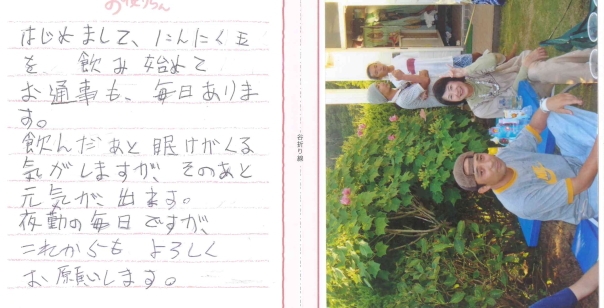 お便りらん
はじめまして、にんにく玉
を、飲み始めて
お通事も、毎日ありま
す。
飲んだあと眠けがくる
気がしますが、そのあと
元気が、出ます。
夜勤の毎日ですが、
これからも よろしく
お願いします。
谷折り線